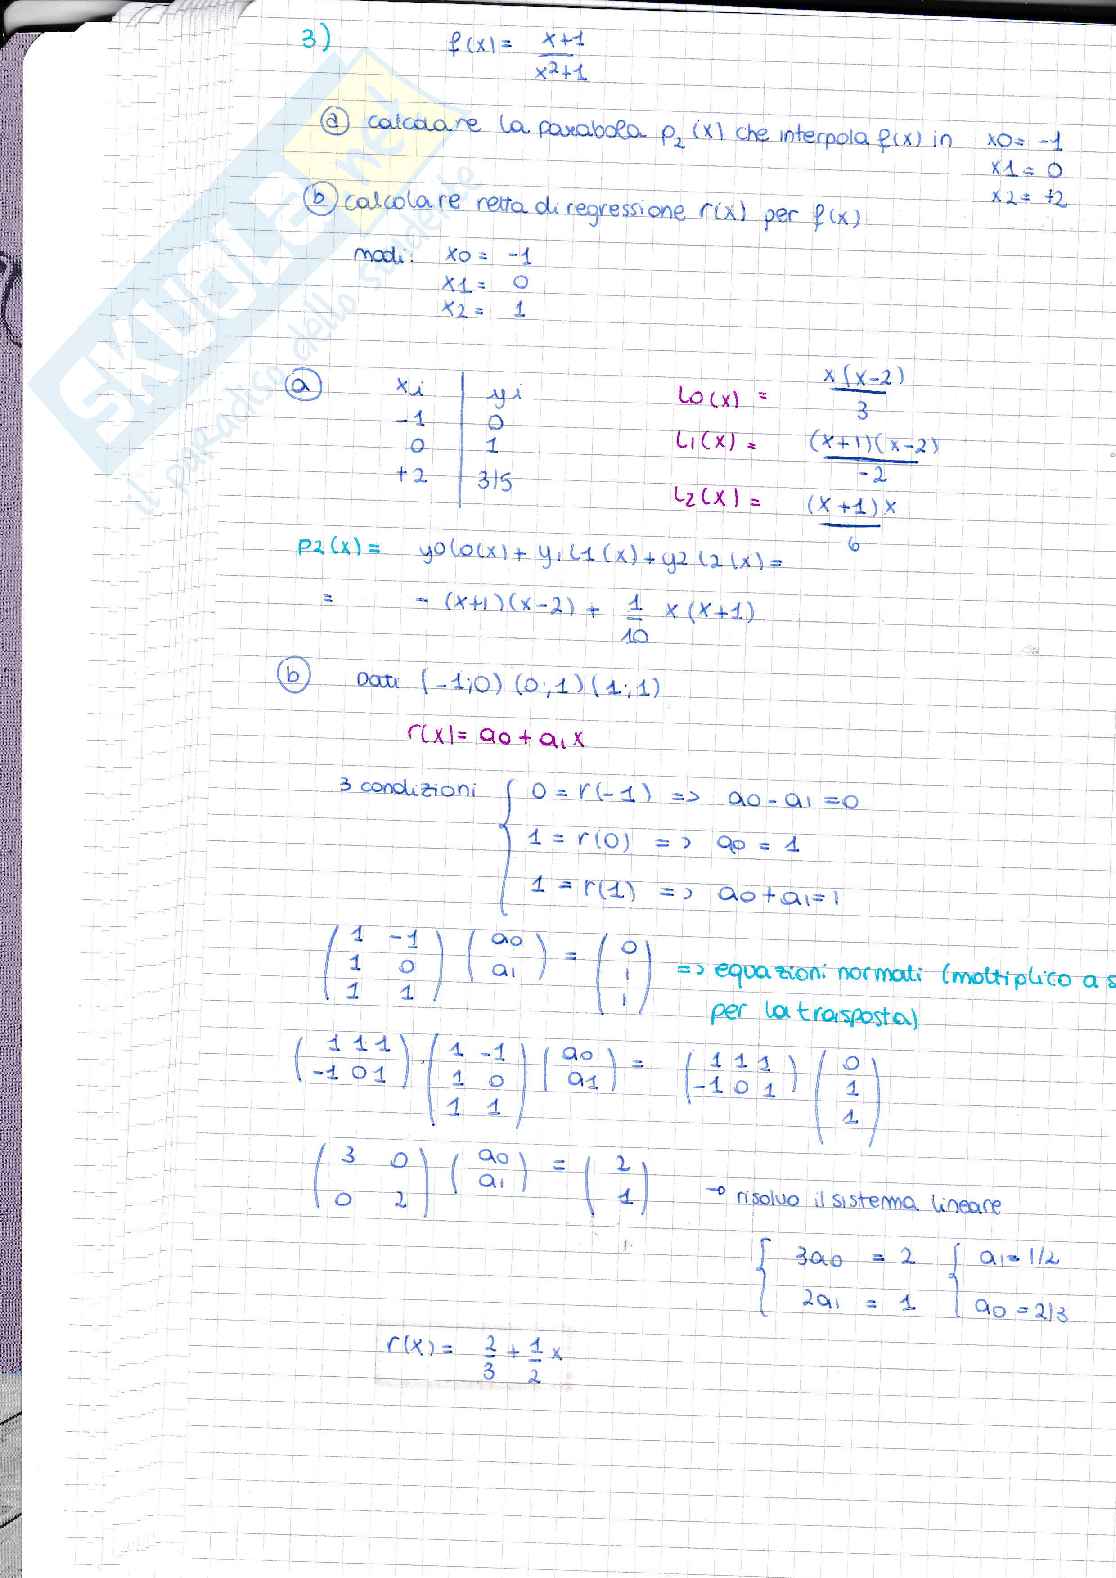 3) f(x) = x+1 / x²+1
ⓐ calcolare la parabola p₂(x) che interpola f(x) in x0 = -1
x1 = 0
x2 = +2
ⓑ calcolare retta di regressione r(x) per f(x)
nodi: x0 = -1
x1 = 0
x2 = 1
ⓐ xi | yi
-1 | 0
0 | 1
+2 | 3/5
L0(x) = x(x-2) / 3
L1(x) = (x+1)(x-2) / -2
L2(x) = (x+1)x / 6
P2(x) = y0 l0(x) + y1 l1(x) + y2 l2(x) =
= - (x+1)(x-2) + 1/10 x(x+1)
ⓑ Dati (-1;0) (0;1) (1;1)
r(x) = a0 + a1 x
3 condizioni { 0 = r(-1) => a0 - a1 = 0
1 = r(0) => a0 = 1
1 = r(1) => a0 + a1 = 1
(1 -1
1 0
1 1) (a0
a1) = (0
1
1) => equazioni normali (moltiplico a s
per la trasposta)
(1 1 1
-1 0 1) · (1 -1
1 0
1 1) (a0
a1) = (1 1 1
-1 0 1) (0
1
1)
(3 0
0 2) (a0
a1) = (2
1) → risolvo il sistema lineare
{ 3a0 = 2 { a1 = 1/2
2a1 = 1 a0 = 2/3
r(x) = 2/3 + 1/2 x
SKUOLA.net
il paradiso dello studente